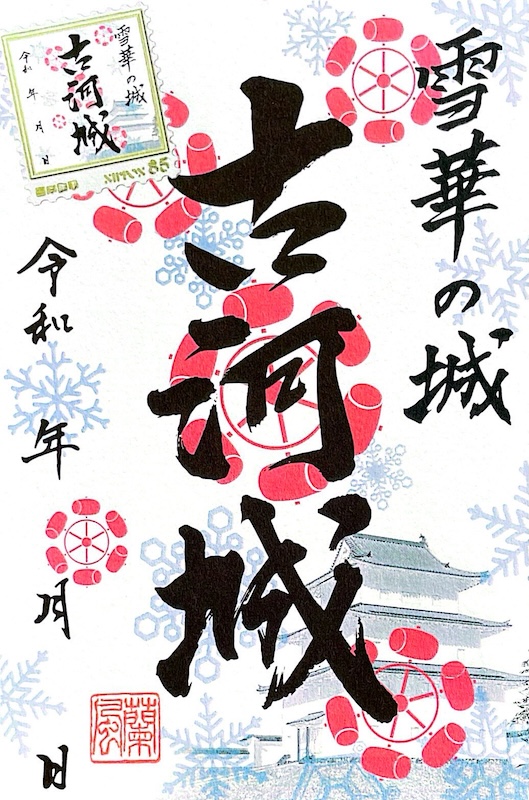 雪華の城
古河城
令和 年 月 日
雪華の城
古河城
令和 年 月 日
NIPPON 85
日本郵便